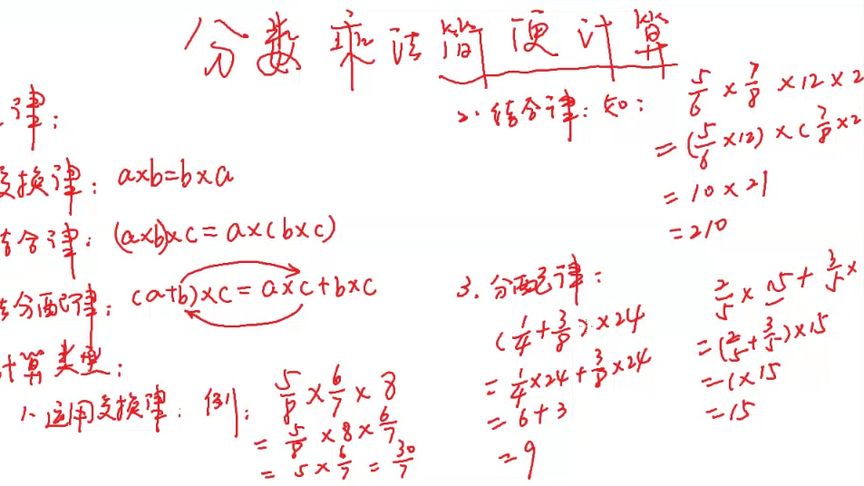 分数乘法简便计算
律:
交换律: a×b=b×a
结合律: (a×b)×c=a×(b×c)
分配律: (a+b)×c=a×c+b×c
计算类型:
1、运用交换律: 例: 5/8×6/7×8
=5/8×8×6/7
=5×6/7=30/7
2. 结合律: 如: 5/6×7/8×12×2
=(5/6×12)×(7/8×2
=10×21
=210
3. 分配律:
(1/4+3/8)×24
=1/4×24+3/8×24
=6+3
=9
2/5×15+3/5×
=(2/5+3/5)×15
=1×15
=15